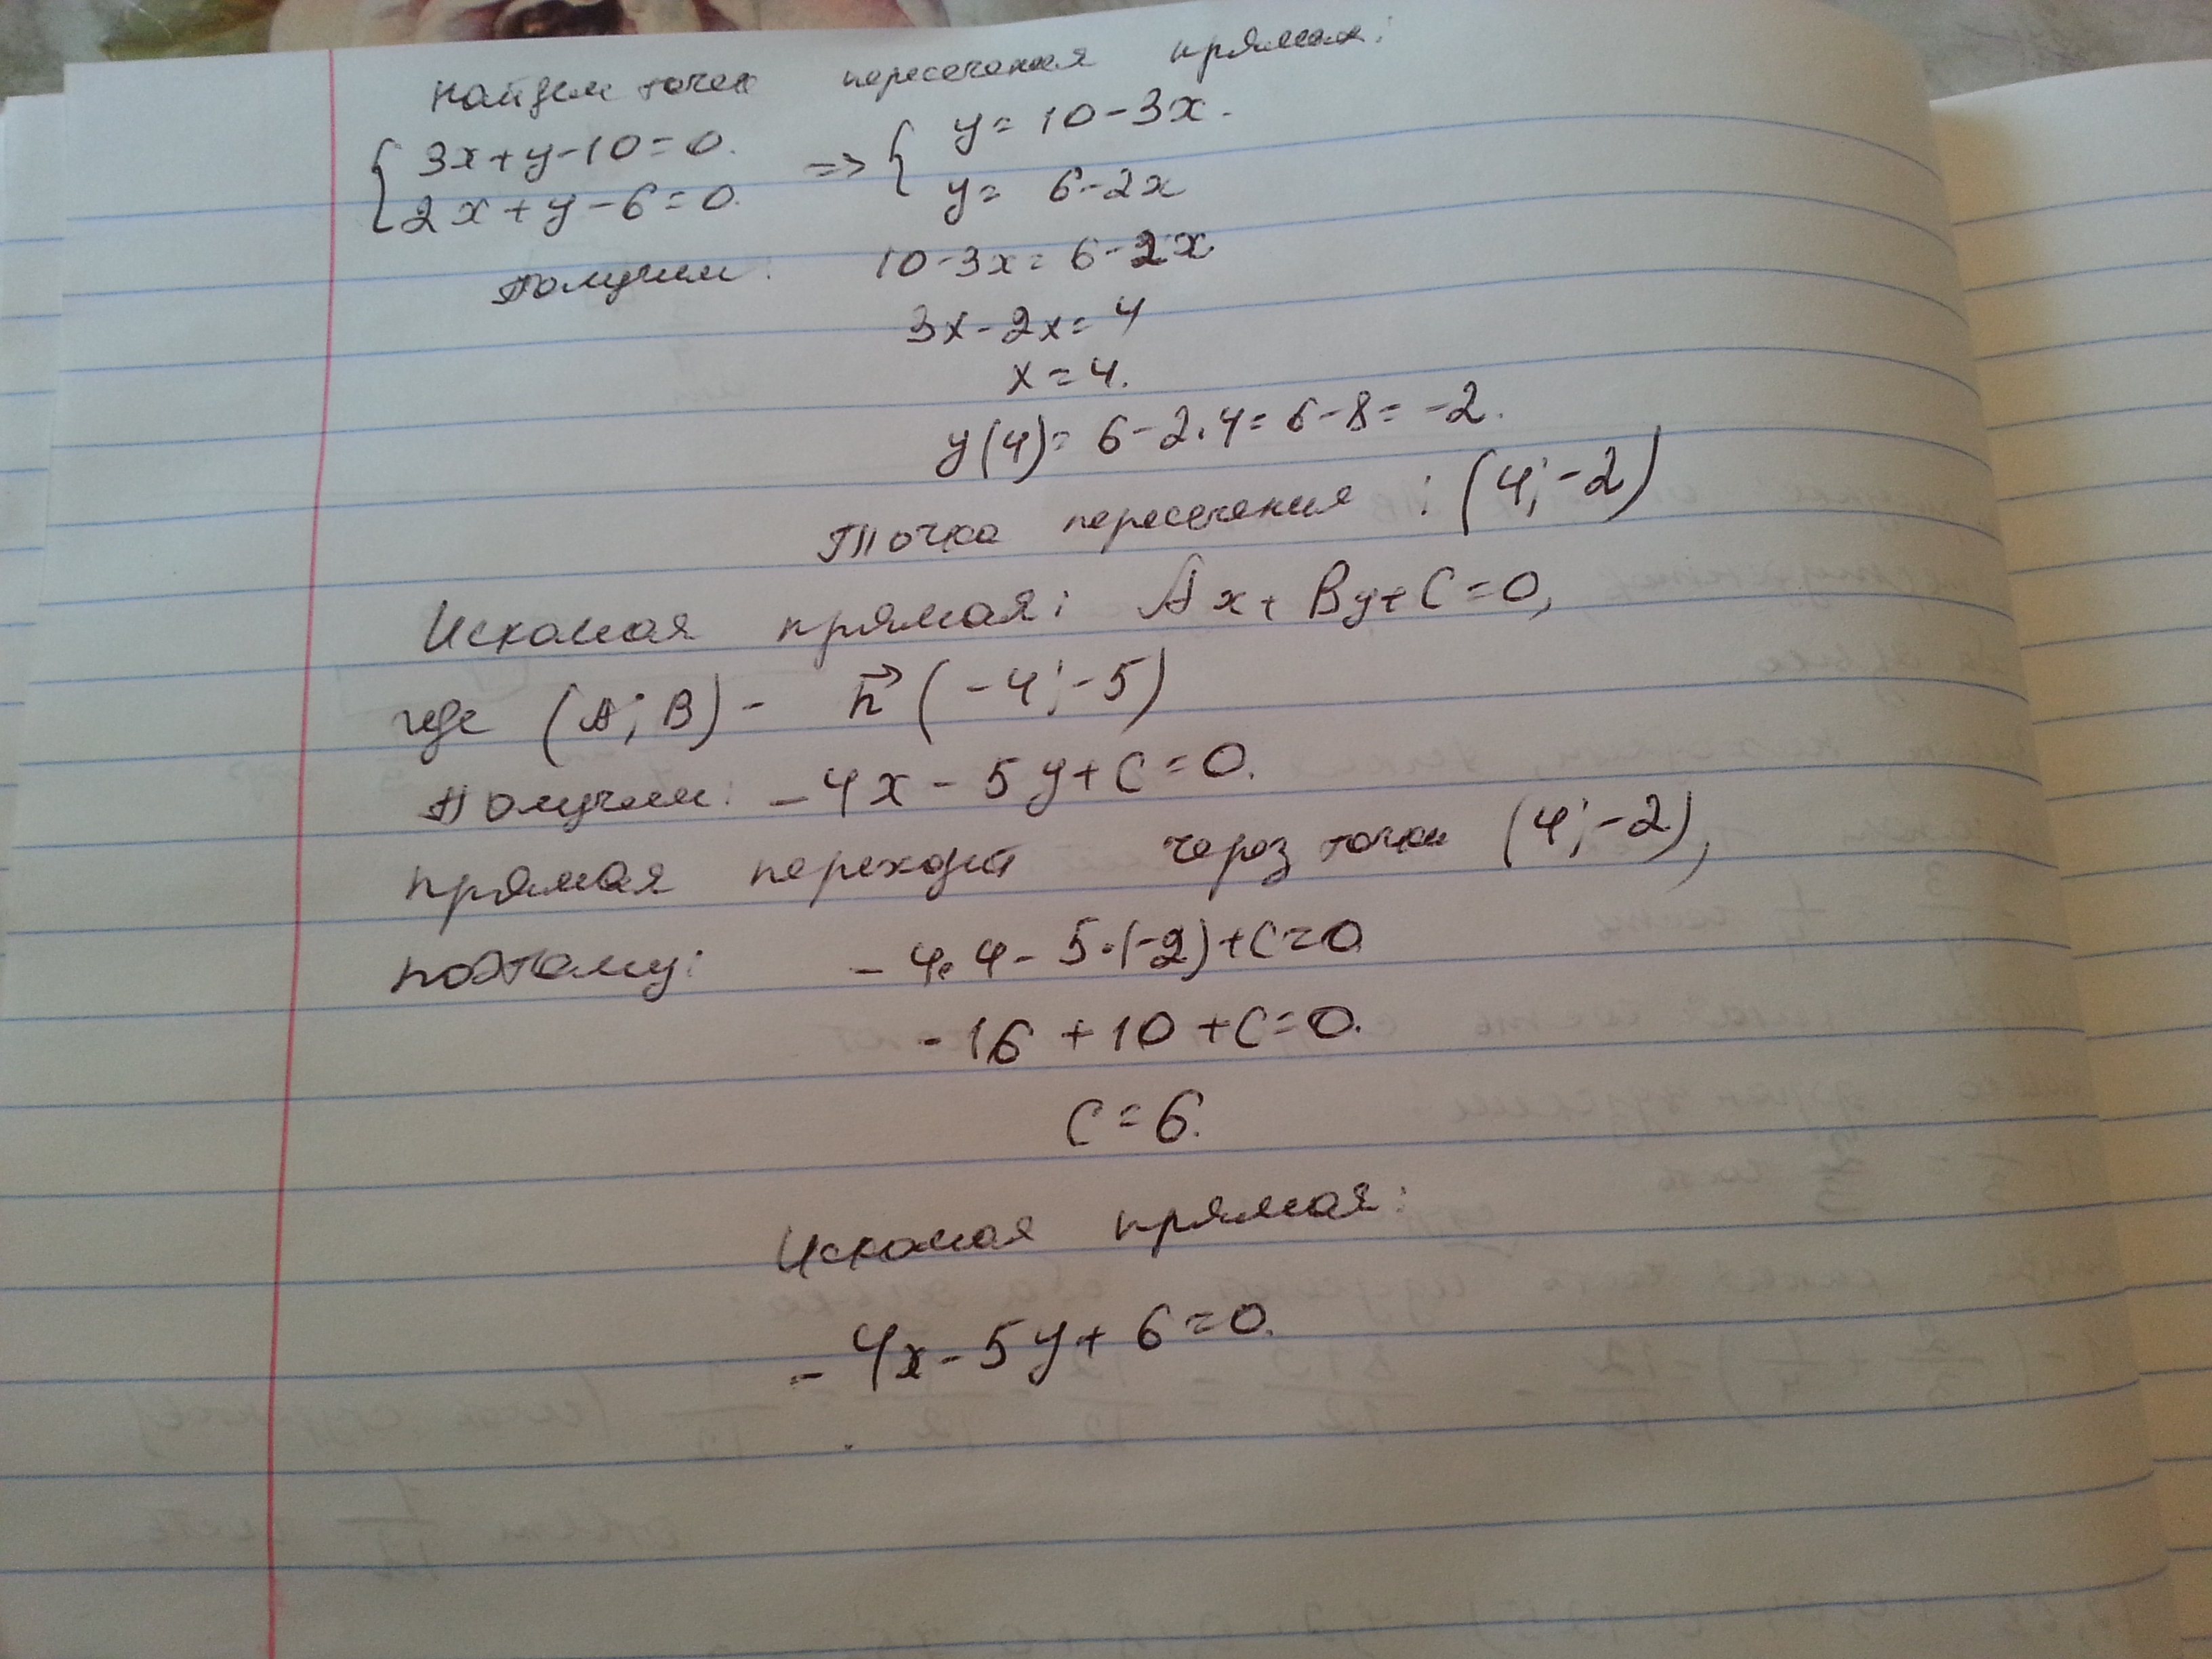 найдем точки пересечения прямых:
{ 3x+y-10=0. => { y= 10-3x.
2x+y-6=0. y= 6-2x
Получим: 10-3x=6-2x
3x-2x=4
x=4.
y(4)= 6-2.4=6-8= -2.
Точка пересечения: (4;-2)
Искомая прямая: Ax+By+C=0,
где (A;B)- n⃗ (-4;-5)
Получим: -4x-5y+C=0.
прямая переходит через точки (4;-2),
поэтому: -4.4-5.(-2)+C=0
-16+10+C=0.
C=6.
Искомая прямая:
-4x-5y+6=0.